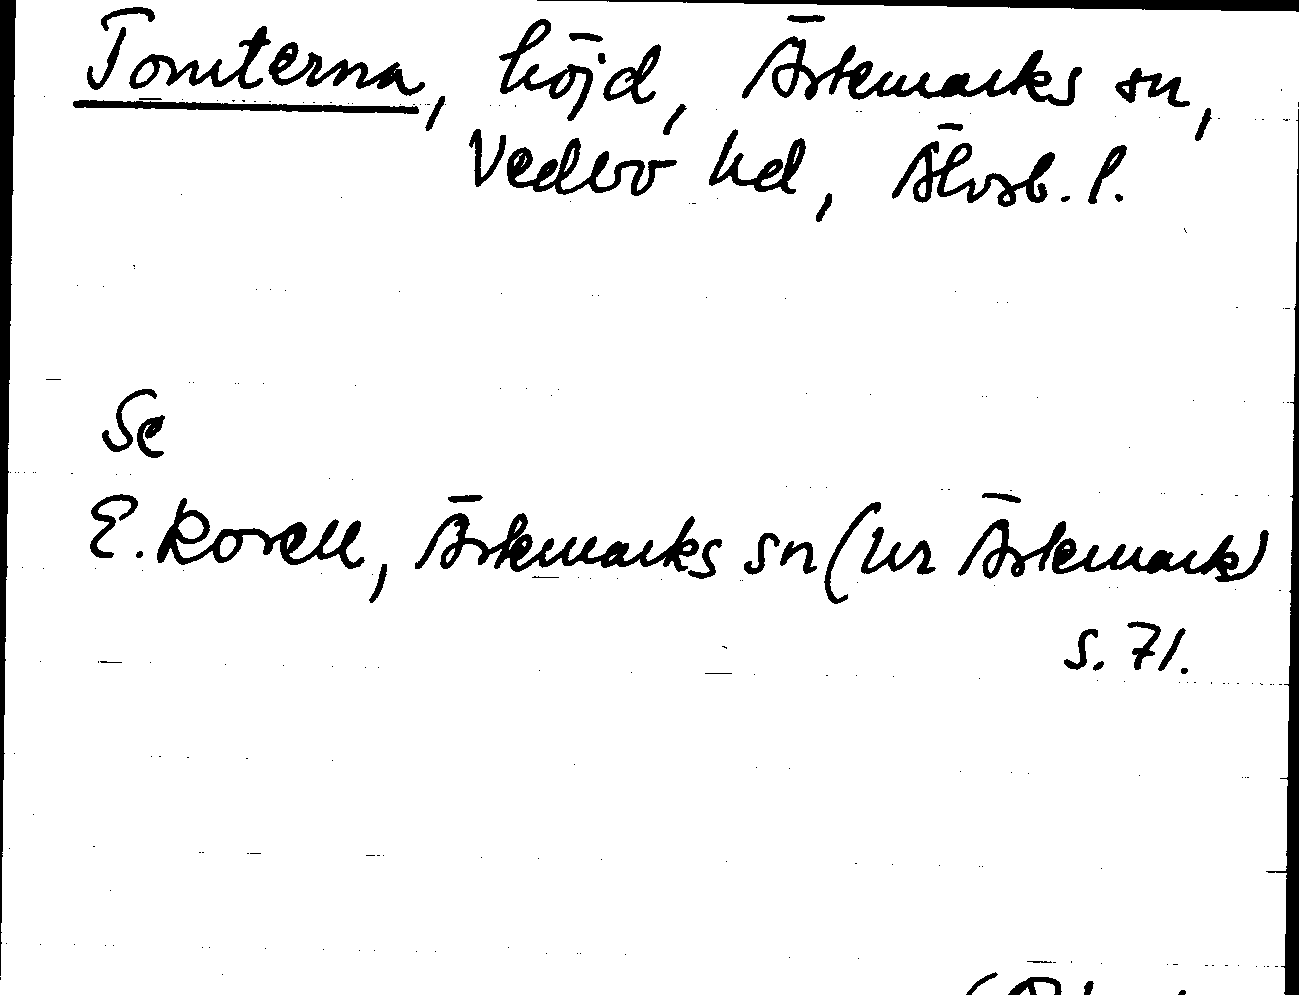 Tomterna, höjd, Ärtemarks sn,
Vedbo hd, Älvsb. l.
Se
E. Rorell, Ärtemarks sn (ur Ärtemark)
s. 71.